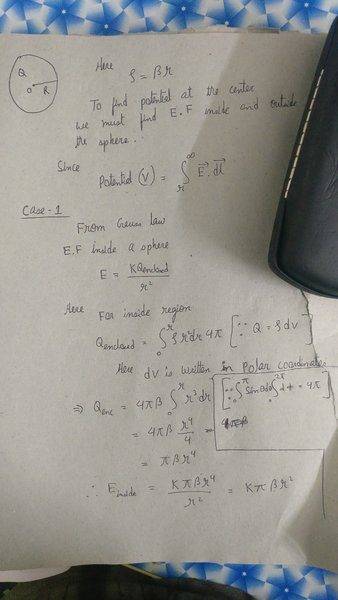 Q
O R
Here
ρ = βr
To find potential at the center
we must find E.F inside and outside
the sphere.
Since
Potential (V) = ∫_r^∞ E⃗.dl⃗
Case-1
From Gauss law
E.F inside a sphere
E = KQenclosed / r²
Here For inside region
Qenclosed = ∫_0^r ρ r²dr 4π [∵ Q = ρdV]
Here dV is written in Polar coordinates
⇒ Qenc = 4πβ ∫_0^r r³dr [∵ ∫_0^π Sinθdθ ∫_0^2π dϕ = 4π]
= 4πβ r⁴/4 =
= πβr⁴
∴ Einside = KπβR⁴ / r² = Kπβr²